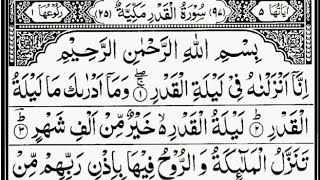 اٰيَاتُهَا ٥ (٩٧) سُوْرَةُ الْقَدْرِ مَكِّيَّةٌ (٢٥) رُكُوْعُهَا ١
بِسْمِ اللّٰهِ الرَّحْمٰنِ الرَّحِيْمِ
اِنَّاۤ اَنْزَلْنٰهُ فِيْ لَيْلَةِ الْقَدْرِ ۚۖ‏ ١ وَمَاۤ اَدْرٰىكَ مَا لَيْلَةُ
الْقَدْرِ ؕ ٢ لَيْلَةُ الْقَدْرِ ۙ خَيْرٌ مِّنْ اَلْفِ شَهْرٍ ؕ ٣
تَنَزَّلُ الْمَلٰٓئِكَةُ وَ الرُّوْحُ فِيْهَا بِاِذْنِ رَبِّهِمْ مِّنْ